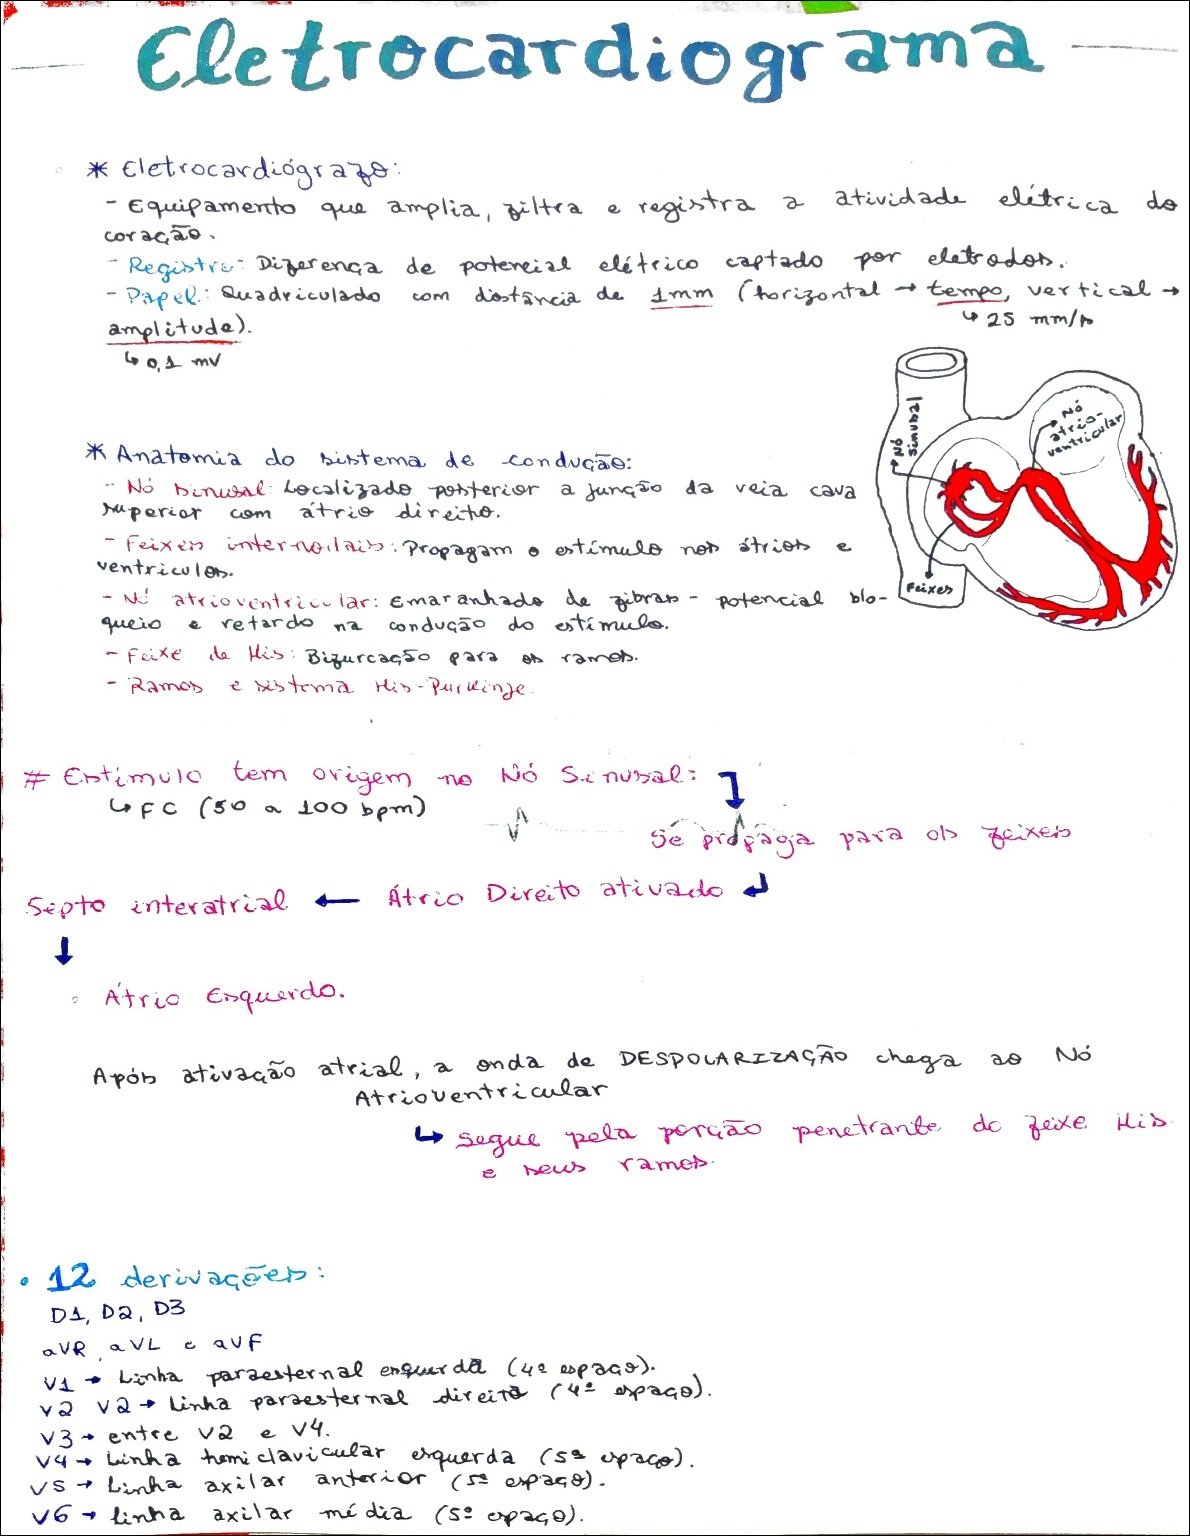 Eletrocardiograma
* Eletrocardiógrafo:
- Equipamento que amplia, filtra e registra a atividade elétrica do
coração.
- Registro: Diferença de potencial elétrico captado por eletrodos.
- Papel: Quadriculado com distância de 1mm (horizontal → tempo, vertical →
↳ 25 mm/s
amplitude).
↳ 0,1 mV
Nó sinusal
Nó
atrio-
ventricular
Feixes
* Anatomia do sistema de condução:
- Nó sinusal: Localizado posterior a junção da veia cava
superior com átrio direito.
- Feixes internodais: Propagam o estímulo nos átrios e
ventriculos.
- Nó atrioventricular: Emaranhado de fibras - potencial blo-
queio e retardo na condução do estímulo.
- Feixe de His: Bifurcação para os ramos.
- Ramos e sistema His-Purkinje.
# Estimulo tem origem no Nó Sinusal:
↳ FC (50 a 100 bpm)
Se propaga para os feixes
Septo interatrial ← Átrio Direito ativado
Átrio Esquerdo.
Após ativação atrial, a onda de DESPOLARIZAÇÃO chega ao Nó
Atrioventricular
↳ segue pela porção penetrante do feixe His
e seus ramos.
• 12 derivações:
D1, D2, D3
aVR, aVL e aVF
V1 → Linha paraesternal esquerda (4º espaço).
V2 V2 → Linha paraesternal direita (4º espaço).
V3 → entre V2 e V4.
V4 → Linha hemiclavicular esquerda (5º espaço).
V5 → Linha axilar anterior (5º espaço).
V6 → linha axilar média (5º espaço).